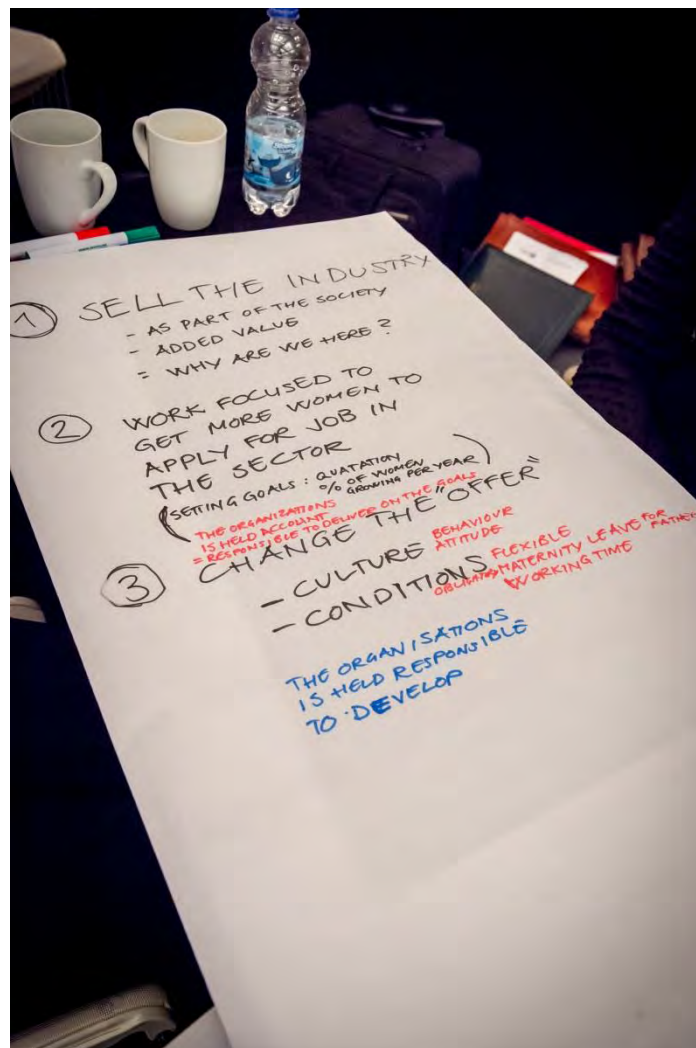 1 SELL THE INDUSTRY
- AS PART OF THE SOCIETY
- ADDED VALUE
= WHY ARE WE HERE?
2 WORK FOCUSED TO
GET MORE WOMEN TO
APPLY FOR JOB IN
THE SECTOR
(SETTING GOALS: QUATATION
% OF WOMEN
GROWING PER YEAR)
THE ORGANIZATIONS
IS HELD ACCOUNT
= RESPONSIBLE TO DELIVER ON THE GOALS
3 CHANGE THE "OFFER"
- CULTURE BEHAVIOUR
ATTITUDE
- CONDITIONS FLEXIBLE
MATERNITY LEAVE FOR
FATHER
WORKING TIME
THE ORGANISATIONS
IS HELD RESPONSIBLE
TO DEVELOP